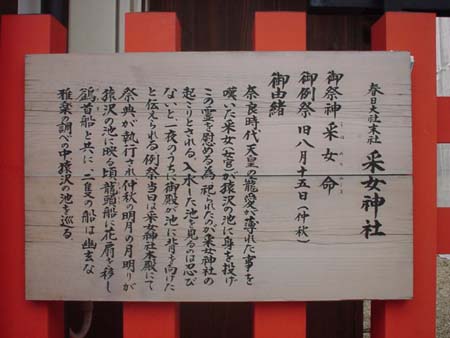 春日大社末社 采女神社
御祭神 采女命
うねめのみこと
御例祭 旧八月十五日(仲秋)
御由緒
奈良時代、天皇の寵愛が薄れた事を
嘆いた采女(女官)が猿沢の池に身を投げ
この霊を慰める為祀られたのが采女神社の
起こりとされる。入水した池を見るのは忍び
ないと一夜のうちに御殿が池に背を向けた
と伝えられる。例祭当日は采女神社本殿にて
祭典が執行され仲秋の明月の月明りが
猿沢の池に映る頃龍頭船に花扇を移し
鷁首船と共に、二隻の船は幽玄な
雅楽の調べの中猿沢の池を巡る。